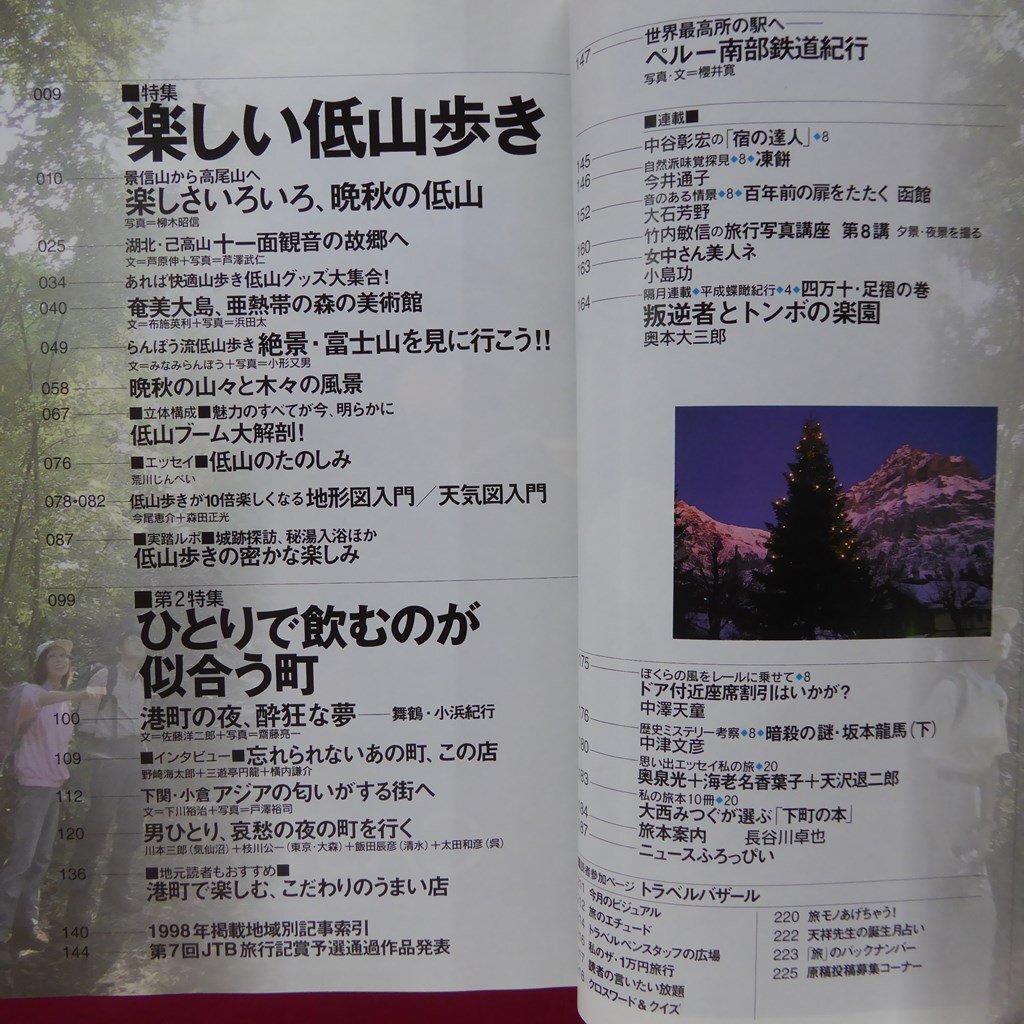 009
■特集
楽しい低山歩き
010
景信山から高尾山へ
楽しさいろいろ、晩秋の低山
写真=柳木昭信
025
湖北・己高山 十一面観音の故郷へ
文=芦原伸+写真=芦澤武仁
034
あれば快適山歩き低山グッズ大集合!
040
奄美大島、亜熱帯の森の美術館
文=布施英利+写真=浜田太
049
らんぼう流低山歩き 絶景・富士山を見に行こう!!
文=みなみらんぼう+写真=小形又男
058
晩秋の山々と木々の風景
067
■立体構成■魅力のすべてが今、明らかに
低山ブーム大解剖!
076
■エッセイ■低山のたのしみ
荒川じんぺい
078・082
低山歩きが10倍楽しくなる 地形図入門/天気図入門
今尾恵介+森田正光
087
■実踏ルポ■城跡探訪、秘湯入浴ほか
低山歩きの密かな楽しみ
099
■第2特集
ひとりで飲むのが
似合う町
100
港町の夜、酔狂な夢――舞鶴・小浜紀行
文=佐藤洋二郎+写真=齋藤亮一
109
■インタビュー■忘れられないあの町、この店
野崎海太郎+三遊亭円龍+横内謙介
112
下関・小倉 アジアの匂いがする街へ
文=下川裕治+写真=戸澤裕司
120
男ひとり、哀愁の夜の町を行く
川本三郎(気仙沼)+枝川公一(東京・大森)+飯田辰彦(清水)+太田和彦(呉)
136
■地元読者もおすすめ■
港町で楽しむ、こだわりのうまい店
140
1998年掲載地域別記事索引
144
第7回JTB旅行記賞予選通過作品発表
147
世界最高所の駅へ――
ペルー南部鉄道紀行
写真・文=櫻井寛
■連載■
145
中谷彰宏の「宿の達人」◆8
146
自然派味覚探見◆8◆凍餅
今井通子
152
音のある情景◆8◆百年前の扉をたたく 函館
大石芳野
160
竹内敏信の旅行写真講座 第8講 夕景・夜景を撮る
163
女中さん美人ネ
小島功
164
隔月連載◆平成蝶瞰紀行◆4◆四万十・足摺の巻
叛逆者とトンボの楽園
奥本大三郎
175
ぼくらの風をレールに乗せて◆8
ドア付近座席割引はいかが?
中澤天童
176
歴史ミステリー考察◆8◆暗殺の謎・坂本龍馬(下)
中津文彦
180
思い出エッセイ私の旅◆20
奥泉光+海老名香葉子+天沢退二郎
183
私の旅本10冊◆20
184
大西みつぐが選ぶ「下町の本」
187
旅本案内 長谷川卓也
ニュースふろっぴい
者参加ページ トラベルバザール
今月のビジュアル
旅のエチュード
トラベルペンスタッフの広場
私のザ・1万円旅行
読者の言いたい放題
クロスワード&クイズ
220 旅モノあげちゃう!
222 天祥先生の誕生月占い
223 「旅」のバックナンバー
225 原稿投稿募集コーナー